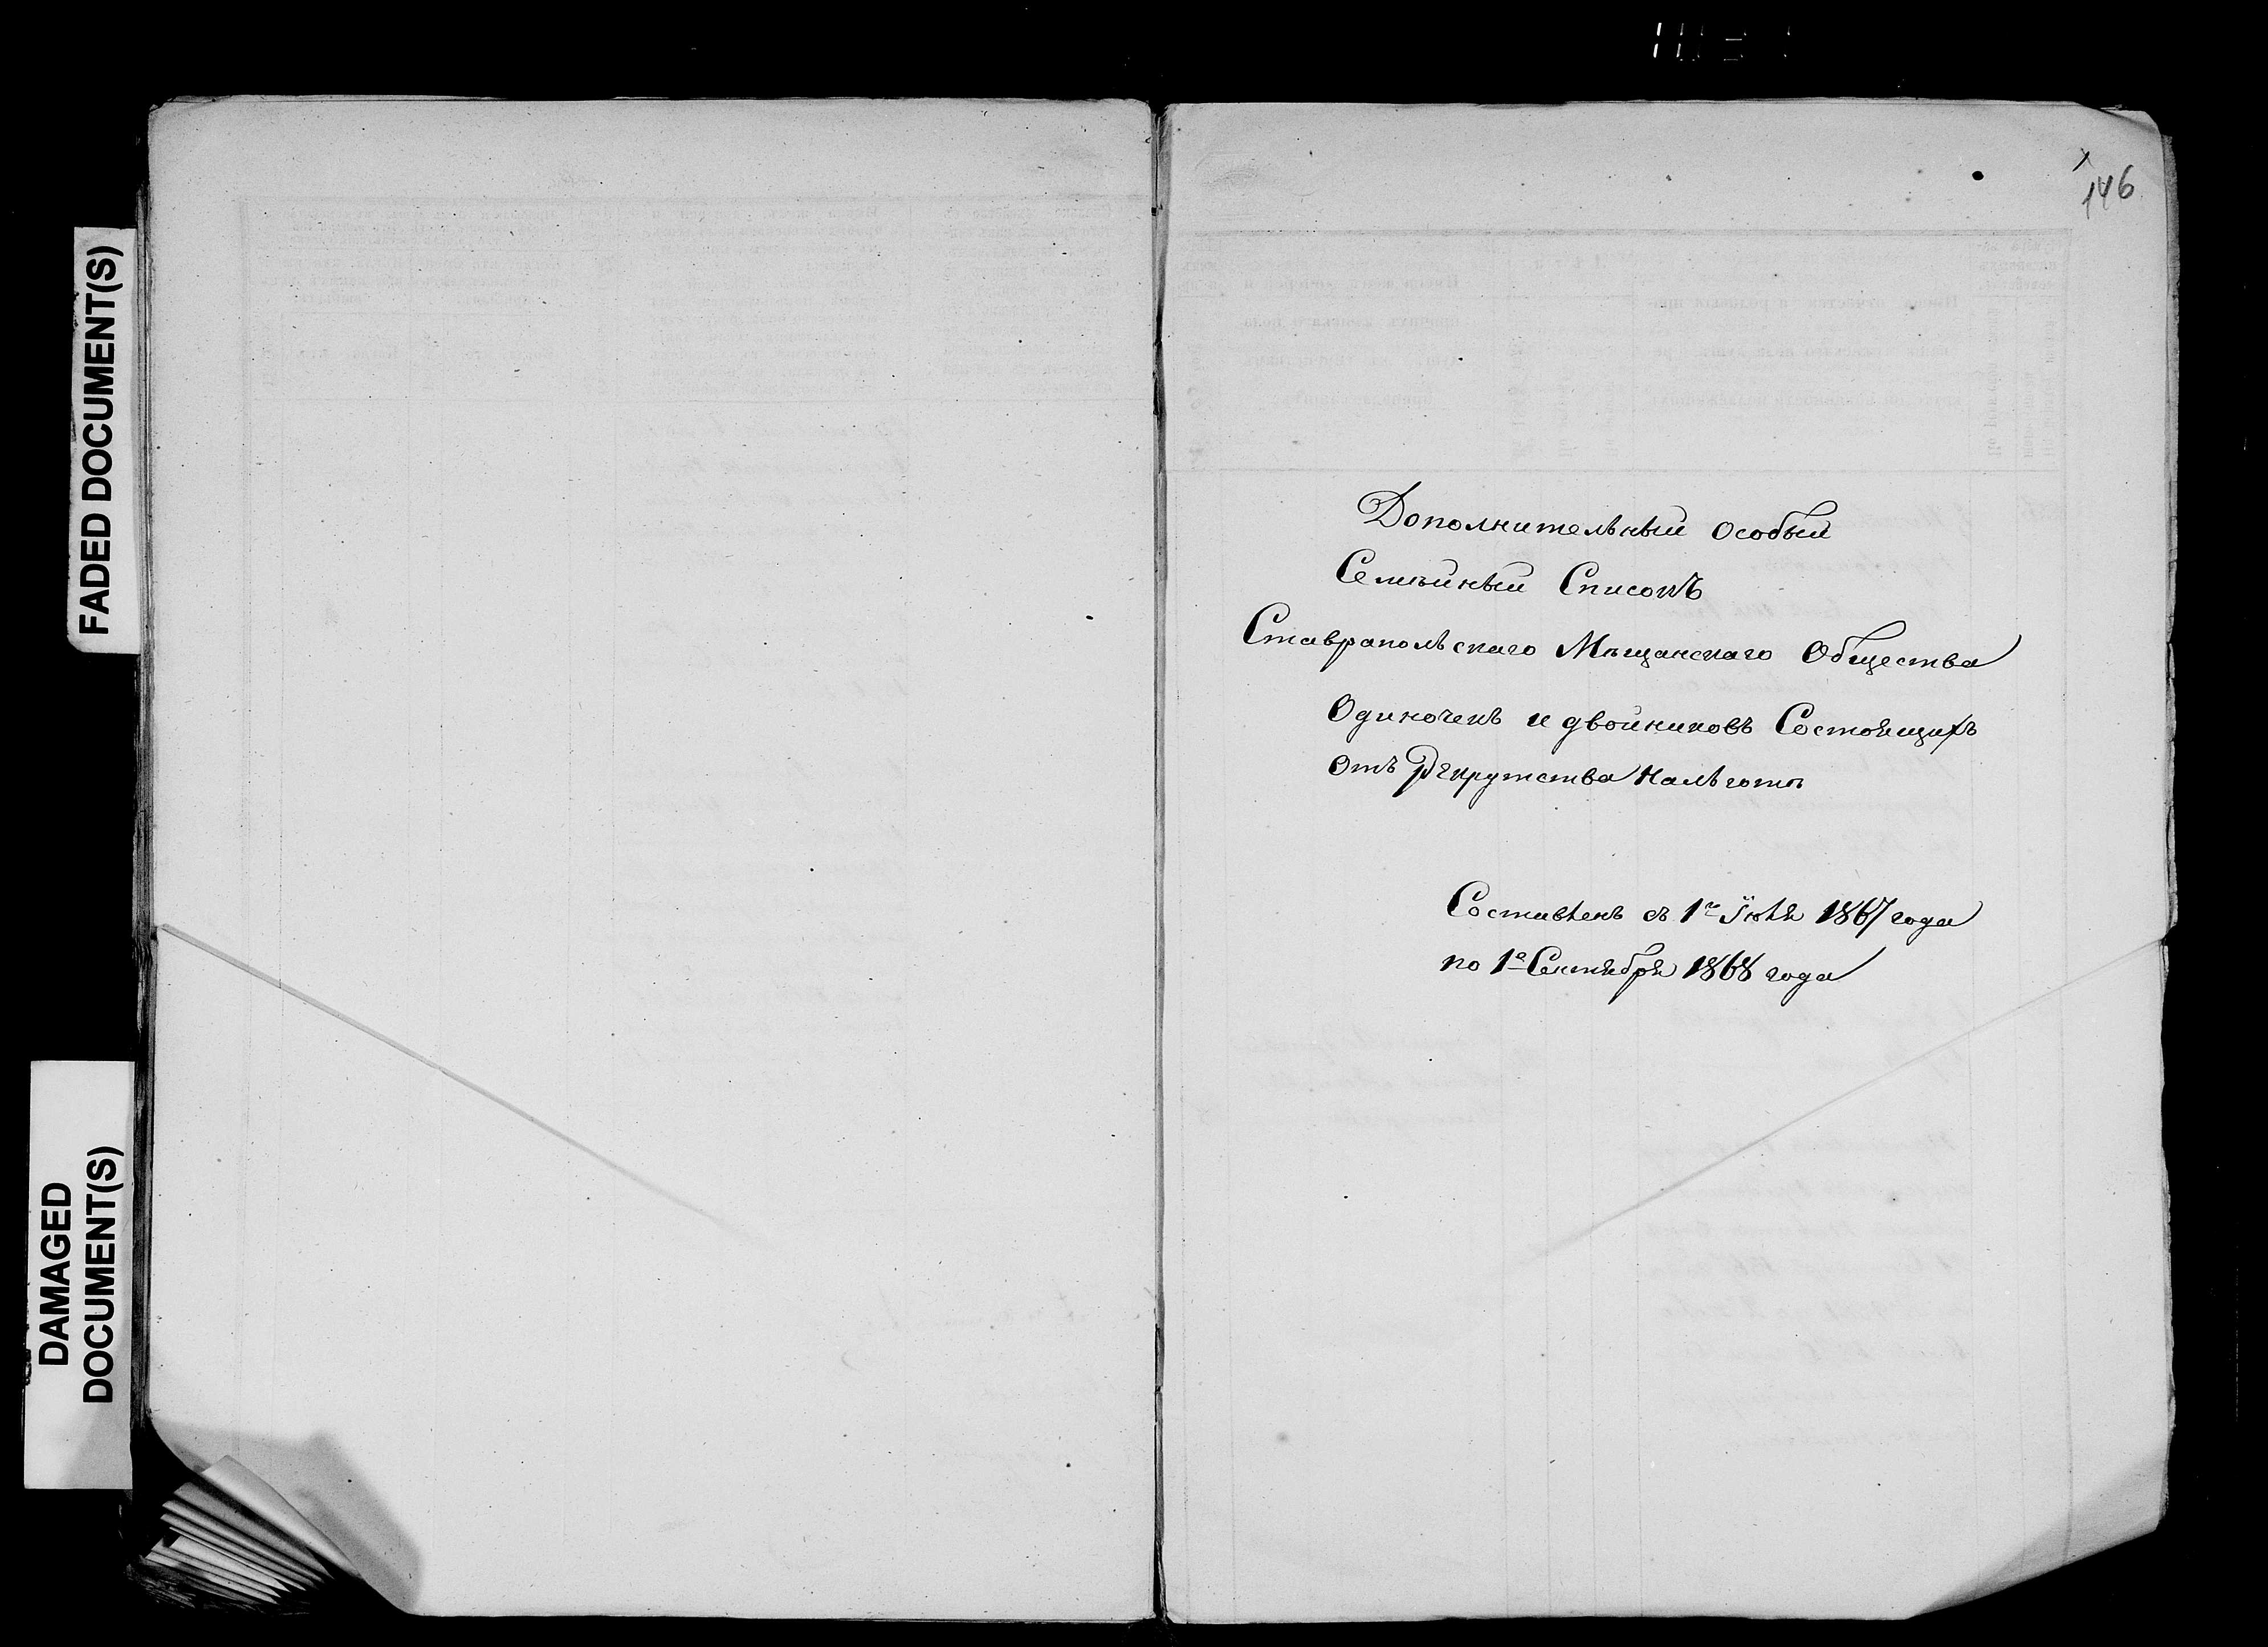 FADED DOCUMENT(S)
DAMAGED
DOCUMENT(S)
146
Дополнительный особый
Семѣйный Списокъ
Ставрапольскаго Мѣщанскаго Общества
Одиночекъ и двойниковъ Состоящихъ
Отъ Рекрутства Нальготѣ
Составленъ съ 1го Іюля 1867 года
по 1е Сентября 1868 года